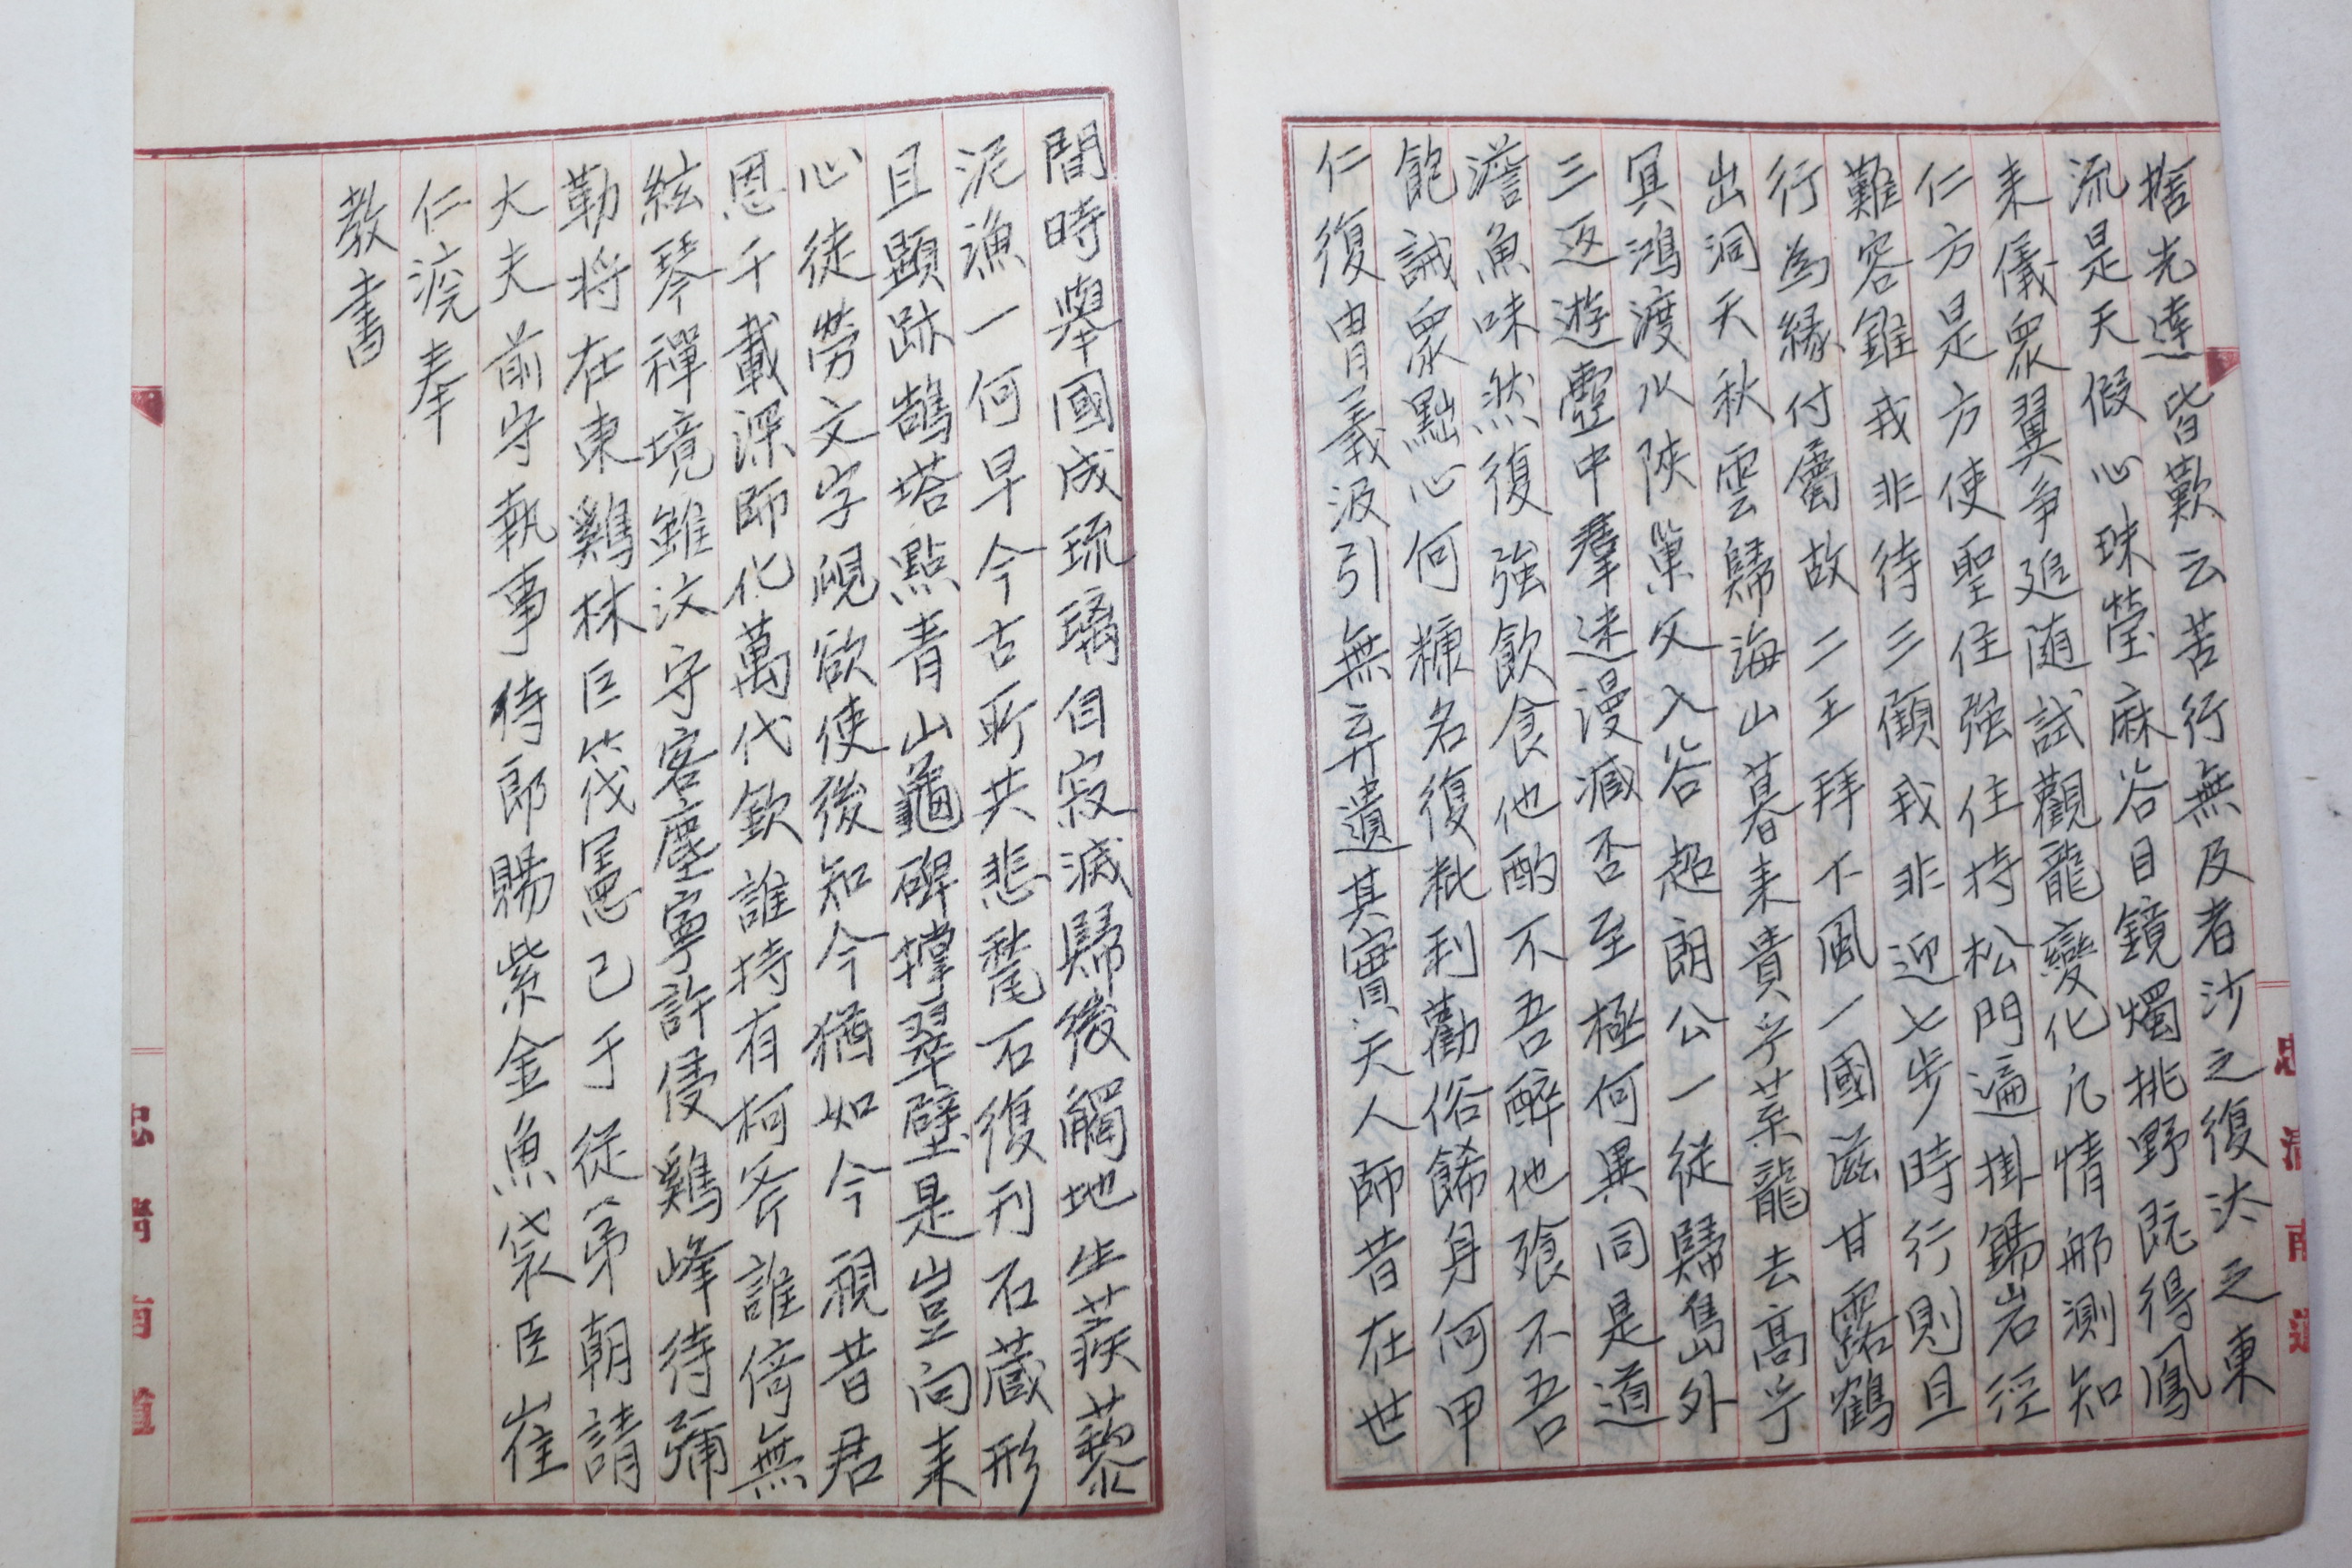 捨光達皆歎云苦行無及者沙之復汰之東
流是天假心珠瑩麻谷目鏡燭挑野既得鳳
来儀衆翼爭追随試觀龍變化凡情那測知
仁方是方使聖住强住持松門遍掛錫岩徑
難容錐我非待三顧我非迎七步時行則且
行為緣付屬故二王拜下風一國滋甘露鶴
出洞天秋雲歸海山暮来貴乎葉龍去高乎
冥鴻渡水陜巢父入谷超朗公一從歸島外
三返遊壺中羣迷漫減否至極何異同是道
澹魚味然復強飲食他酌不吾醉他飡不吾
飽誡衆黜心何糠名復粃利勸俗餙身何甲
仁復冑義汲引無弃遺其實天人師昔在世
間時舉國成琉璃自寂滅歸後觸地生蒺藜
泥漁一何早今古所共悲甃石復刊石蔵形
且顯跡鵠塔點青山龜碑撑翠壁是豈向来
心徒勞文字覗欲使後知今猶如今視昔君
恩千載深師化萬代欽誰持有柯斧誰倚無
絃琴禪境雖汶守客塵寧許侵鷄峰待彌
勒将在東鷄林臣
大夫前守執事侍郎賜紫金魚袋臣崔
仁滾奉
教書
忠清南道
忠清南道